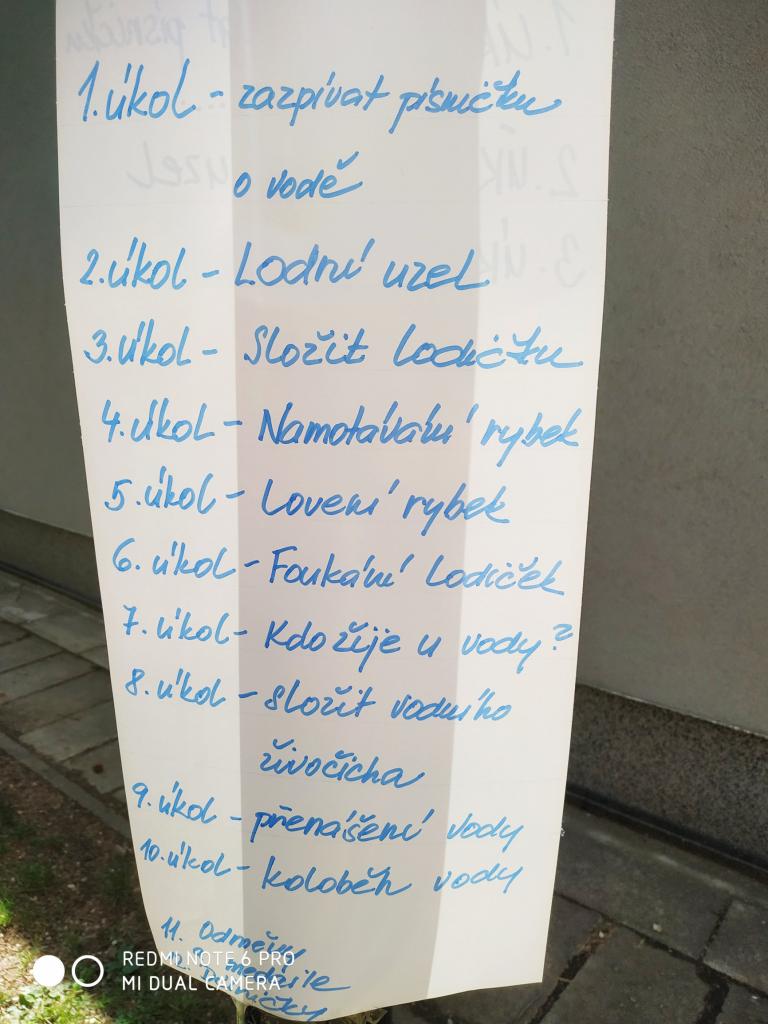 1. úkol - zazpívat písničku
o vodě
2. úkol - Lodní uzel
3. úkol - Složit lodičku
4. úkol - Namotávání rybek
5. úkol - Lovení rybek
6. úkol - Foukání lodiček
7. úkol - Kdo žije u vody?
8. úkol - složit vodního
živočicha
9. úkol - přenášení vody
10. úkol - koloběh vody
11. Odměny
REDMI NOTE 6 PRO
MI DUAL CAMERA